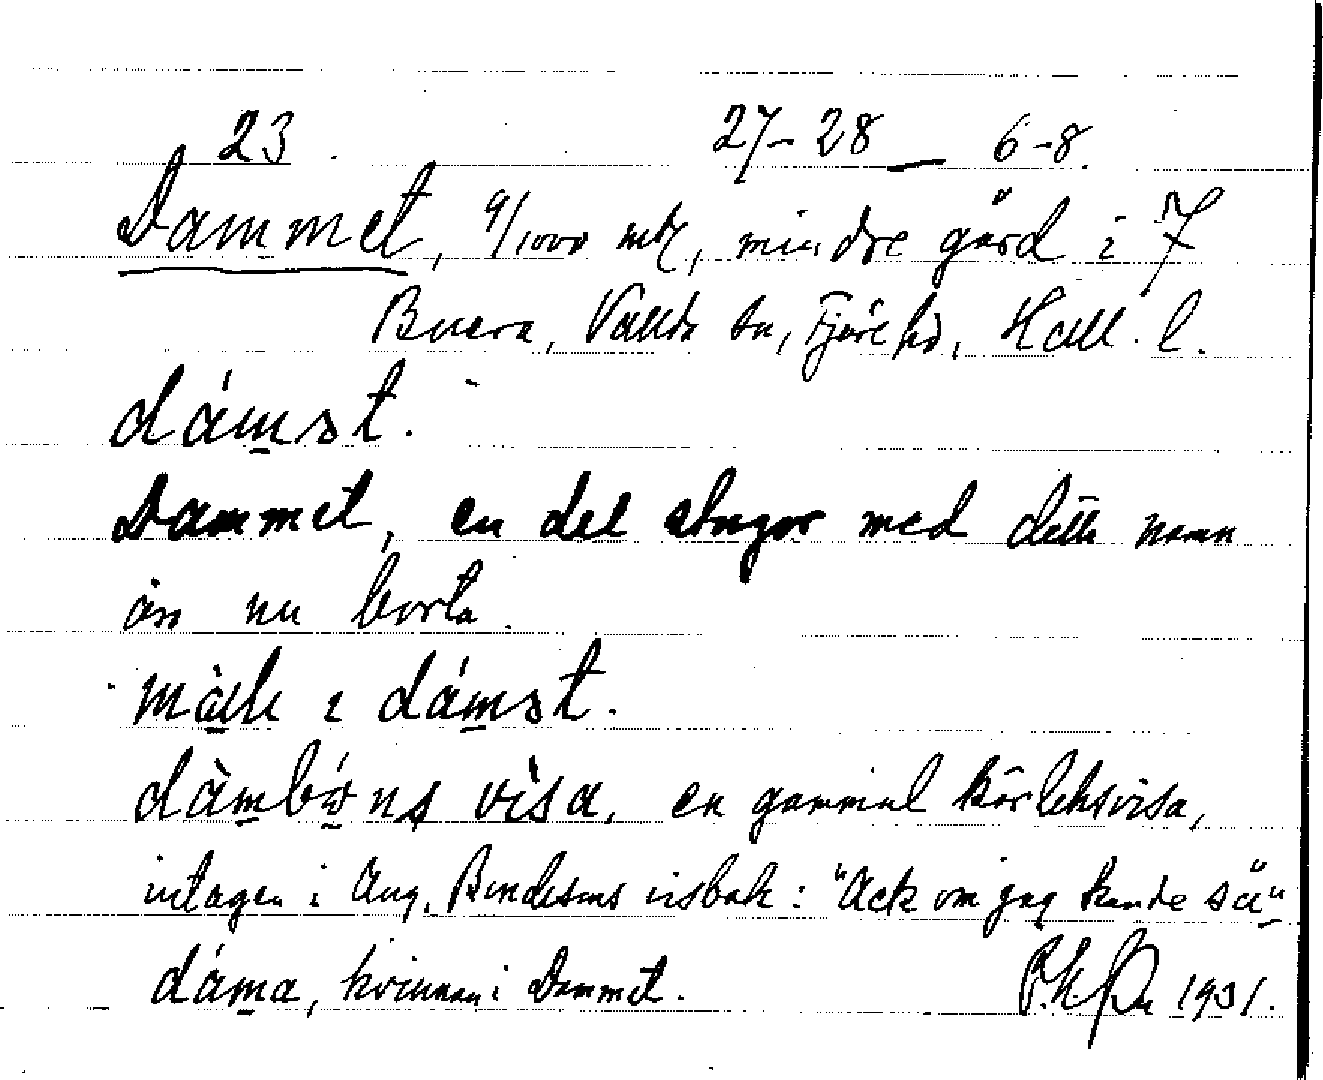 23 27-28 — 6-8.
Dammet, 9/1000 mtl, mindre gård i 7
Buera, Vallda sn, Fjäre hd, Hall. l.
dámst.
Dammet, en del stugor med detta namn
än nu borta.
i dámst.
vìsa, en gammal kärleksvisa,
intagen i Aug. Bondesons visbok: "Ack om jag kunde så"
dáma, kvinnan i Dammet. 1931.